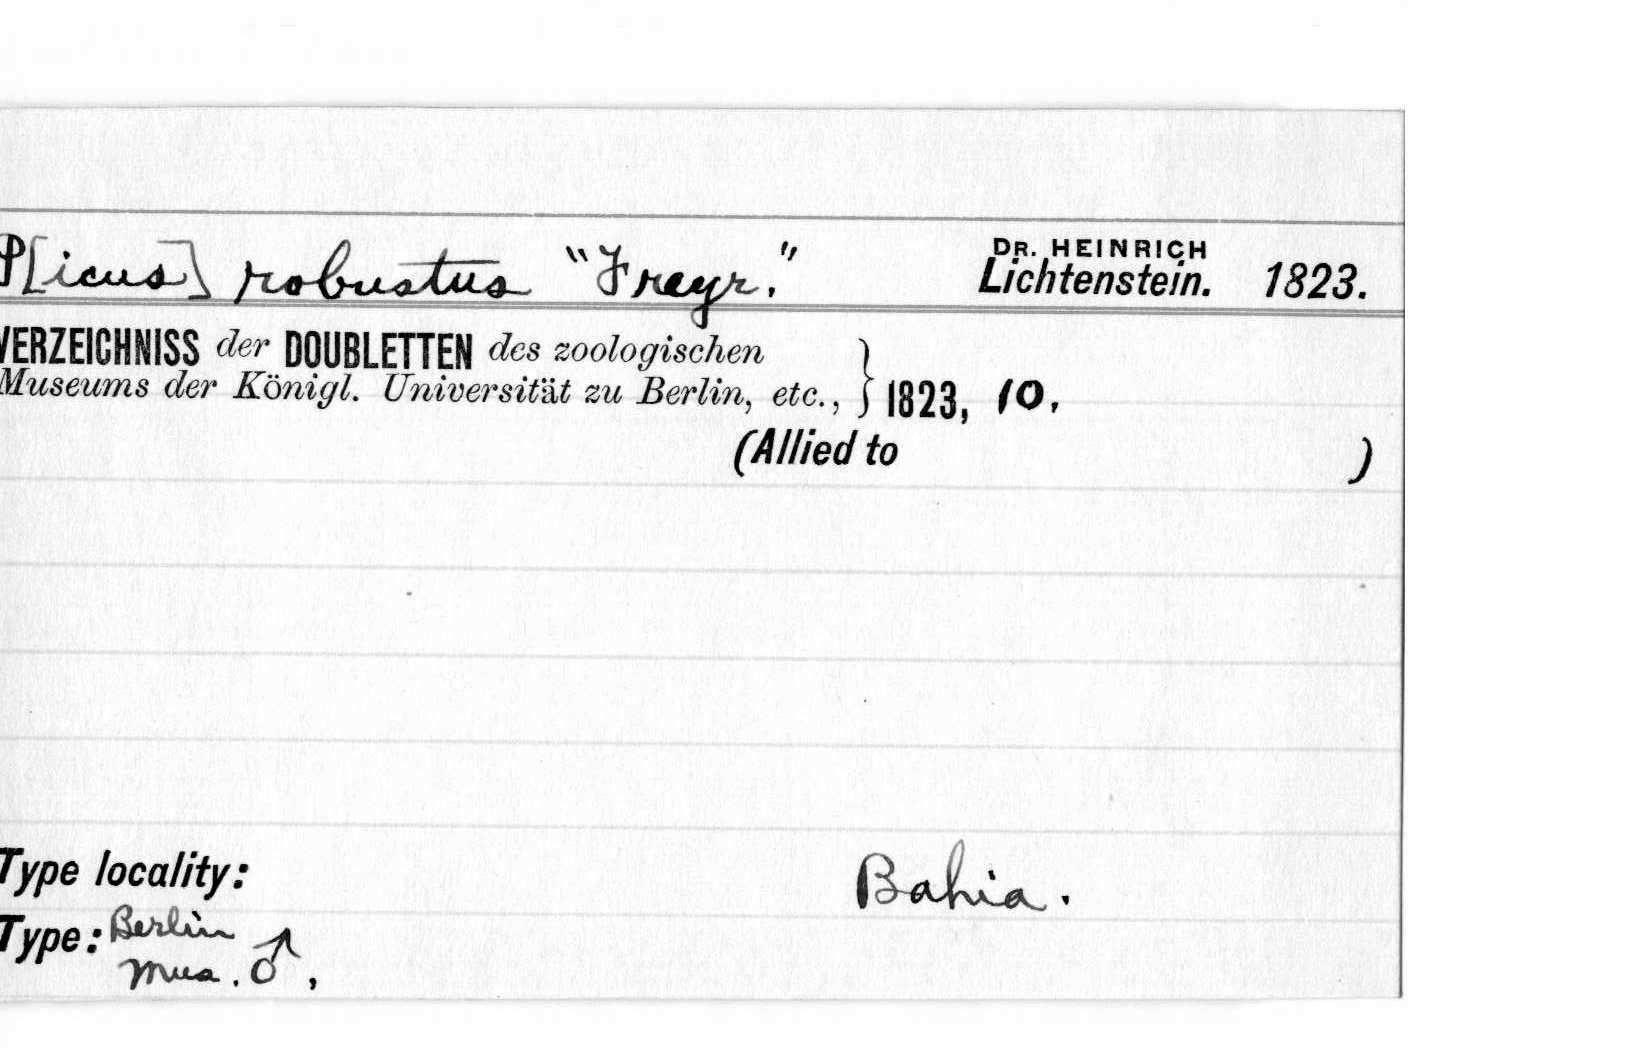 P[icus] robustus "Freyr." DR. HEINRICH Lichtenstein. 1823.
VERZEICHNISS der DOUBLETTEN des zoologischen
Museums der Königl. Universität zu Berlin, etc., } 1823, 10.
(Allied to )
Type locality: Bahia.
Type: Berlin
Mus. ♂,